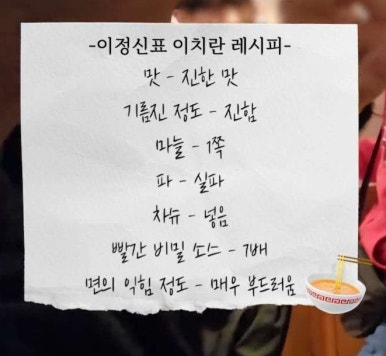 -이정신표 이치란 레시피-
맛 - 진한 맛
기름진 정도 - 진함
마늘 - 1쪽
파 - 실파
차슈 - 넣음
빨간 비밀 소스 - 7배
면의 익힘 정도 - 매우 부드러움